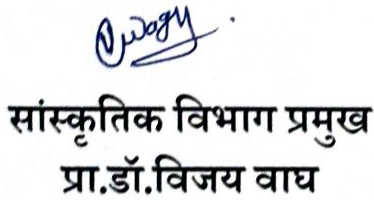 सांस्कृतिक विभाग प्रमुख
प्रा.डॉ.विजय वाघ